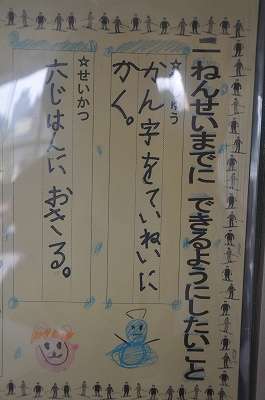 二ねんせいまでに できるようにしたいこと
かん字をていねいに
かく。
☆せいかつ
六じはんに おきる。